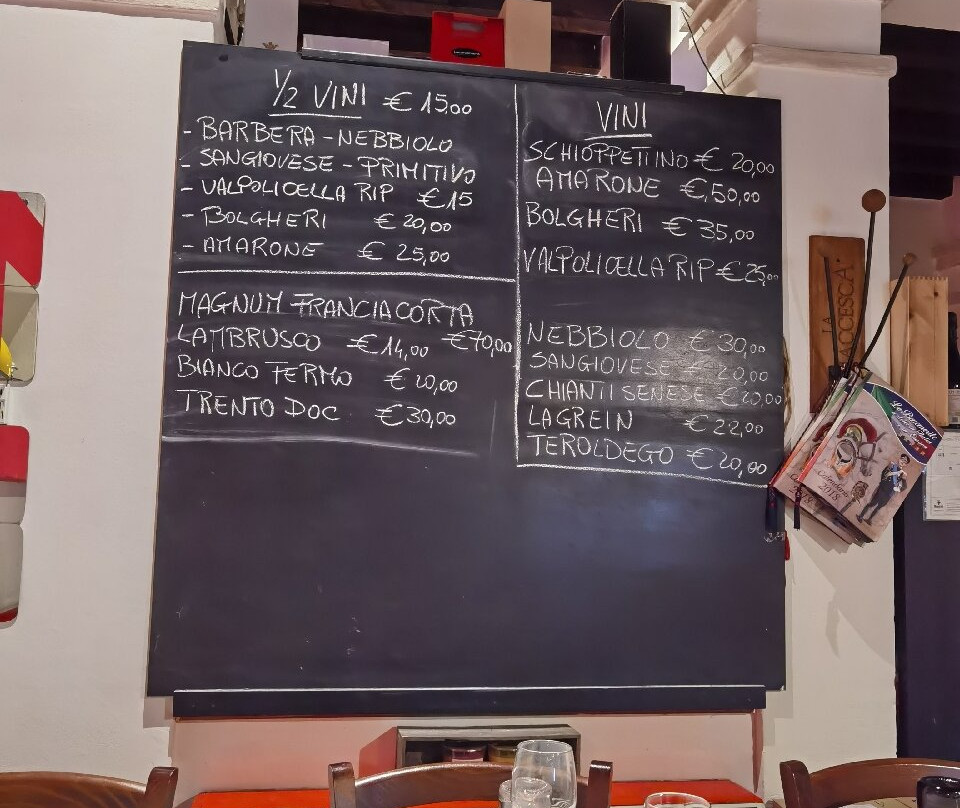 ½ VINI € 15,00
- BARBERA - NEBBIOLO
- SANGIOVESE - PRIMITIVO
- VALPOLICELLA RIP €15
- BOLGHERI € 20,00
- AMARONE € 25,00
MAGNUM FRANCIACORTA
€70,00
LAMBRUSCO €14,00
BIANCO FERMO € 20,00
TRENTO DOC € 30,00
VINI
SCHIOPPETTINO € 20,00
AMARONE € 50,00
BOLGHERI € 35,00
VALPOLICELLA RIP € 25,00
NEBBIOLO € 30,00
SANGIOVESE € 20,00
CHIANTI SENESE € 20,00
LAGREIN € 22,00
TEROLDEGO € 20,00
LA
Calendario
2018